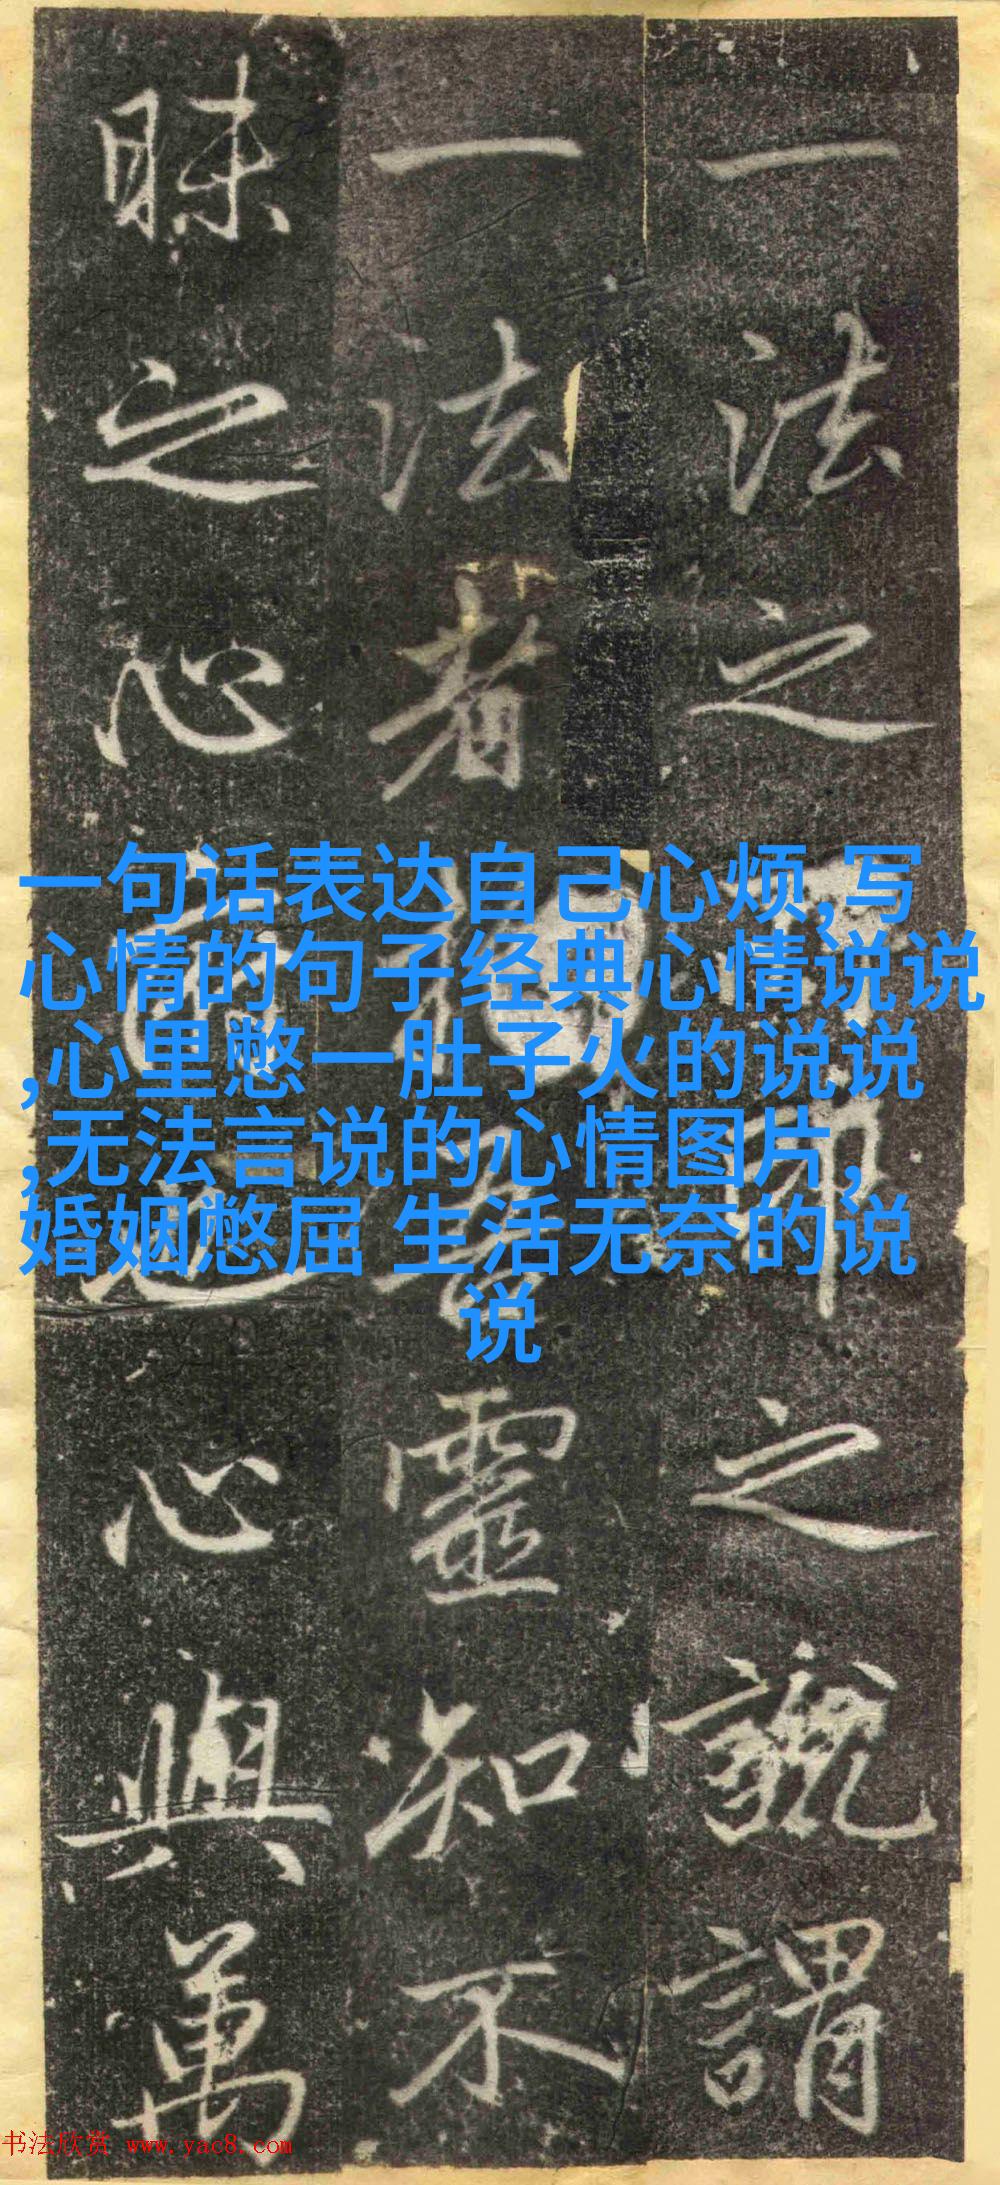 一法之之謂
一法者靈知不
昧之心也心與萬
一句话表达自己心烦,写
心情的句子经典心情说说
,心里憋一肚子火的说说
,无法言说的心情图片,
婚姻憋屈 生活无奈的说
说
书法欣赏 www.yac8.com